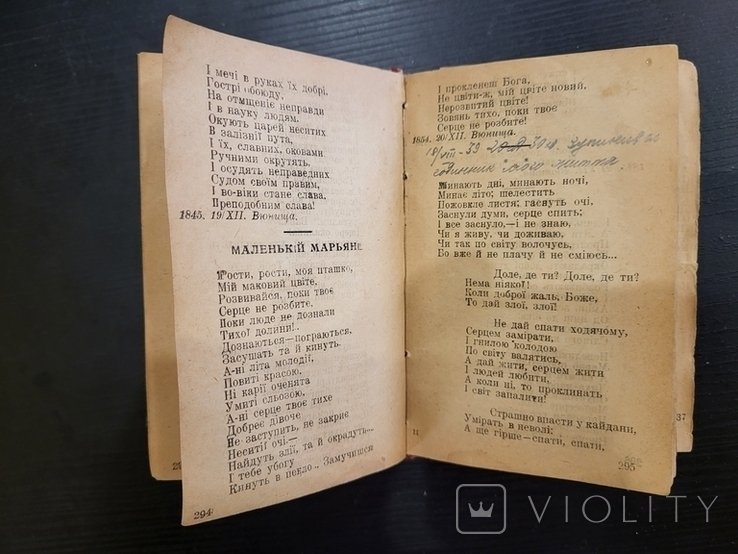 І мечі в руках їх добрі,
Гострі обоюду.
На отмщеніє неправди
І в науку людям.
Окують царей неситих
В залізнії пута,
І їх, славних, оковами
Ручними окрутять,
І осудять неправедних
Судом своїм правим,
І во-віки стане слава,
Преподобним слава!
1845. 19/XII. Вюнища.
МАЛЕНЬКІЙ МАРЬЯНЕ
Рости, рости, моя пташко,
Мій маковий цвіте,
Розвивайся, поки твоє
Серце не розбите.
Поки люде не дознали
Тихої долини!..
Дознаються—пограються,
Засушать та й кинуть.
А-ні літа молодії,
Повиті красою,
Ні карії оченята
Умиті сльозою,
А-ні серце твоє тихе
Доброє дівоче
Не заступить, не закриє
Неситії очі.—
Найдуть злії, та й окрадуть...
І тебе убогу
Кинуть в пекло.. Замучишся
294
І проклянеш Бога,
Не цвіти-ж, мій цвіте новий,
Нерозвитий цвіте!
Зовянь тихо, поки твоє
Серце не розбите!
1854. 20/XII. Вюнища.
18/VIII-33 Зупинився
годинник мого життя
Минають дні, минають ночі,
Минає літо; шелестить
Пожовкле листя; гаснуть очі,
Заснули думи, серце спить;
І все заснуло,—і не знаю,
Чи я живу, чи доживаю,
Чи так по світу волочусь,
Бо вже й не плачу й не сміюсь...
Доле, де ти? Доле, де ти?
Нема ніякої!
Коли доброї жаль, Боже,
То дай злої, злої!
Не дай спати ходячому,
Серцем замірати,
І гнилою колодою
По світу валятись,
А дай жити, серцем жити
І людей любити,
А коли ні, то проклинать
І світ запалити!
Страшно впасти у кайдани,
Умірать в неволі;
А ще гірше—спати, спати,
295
37
VIOLITY